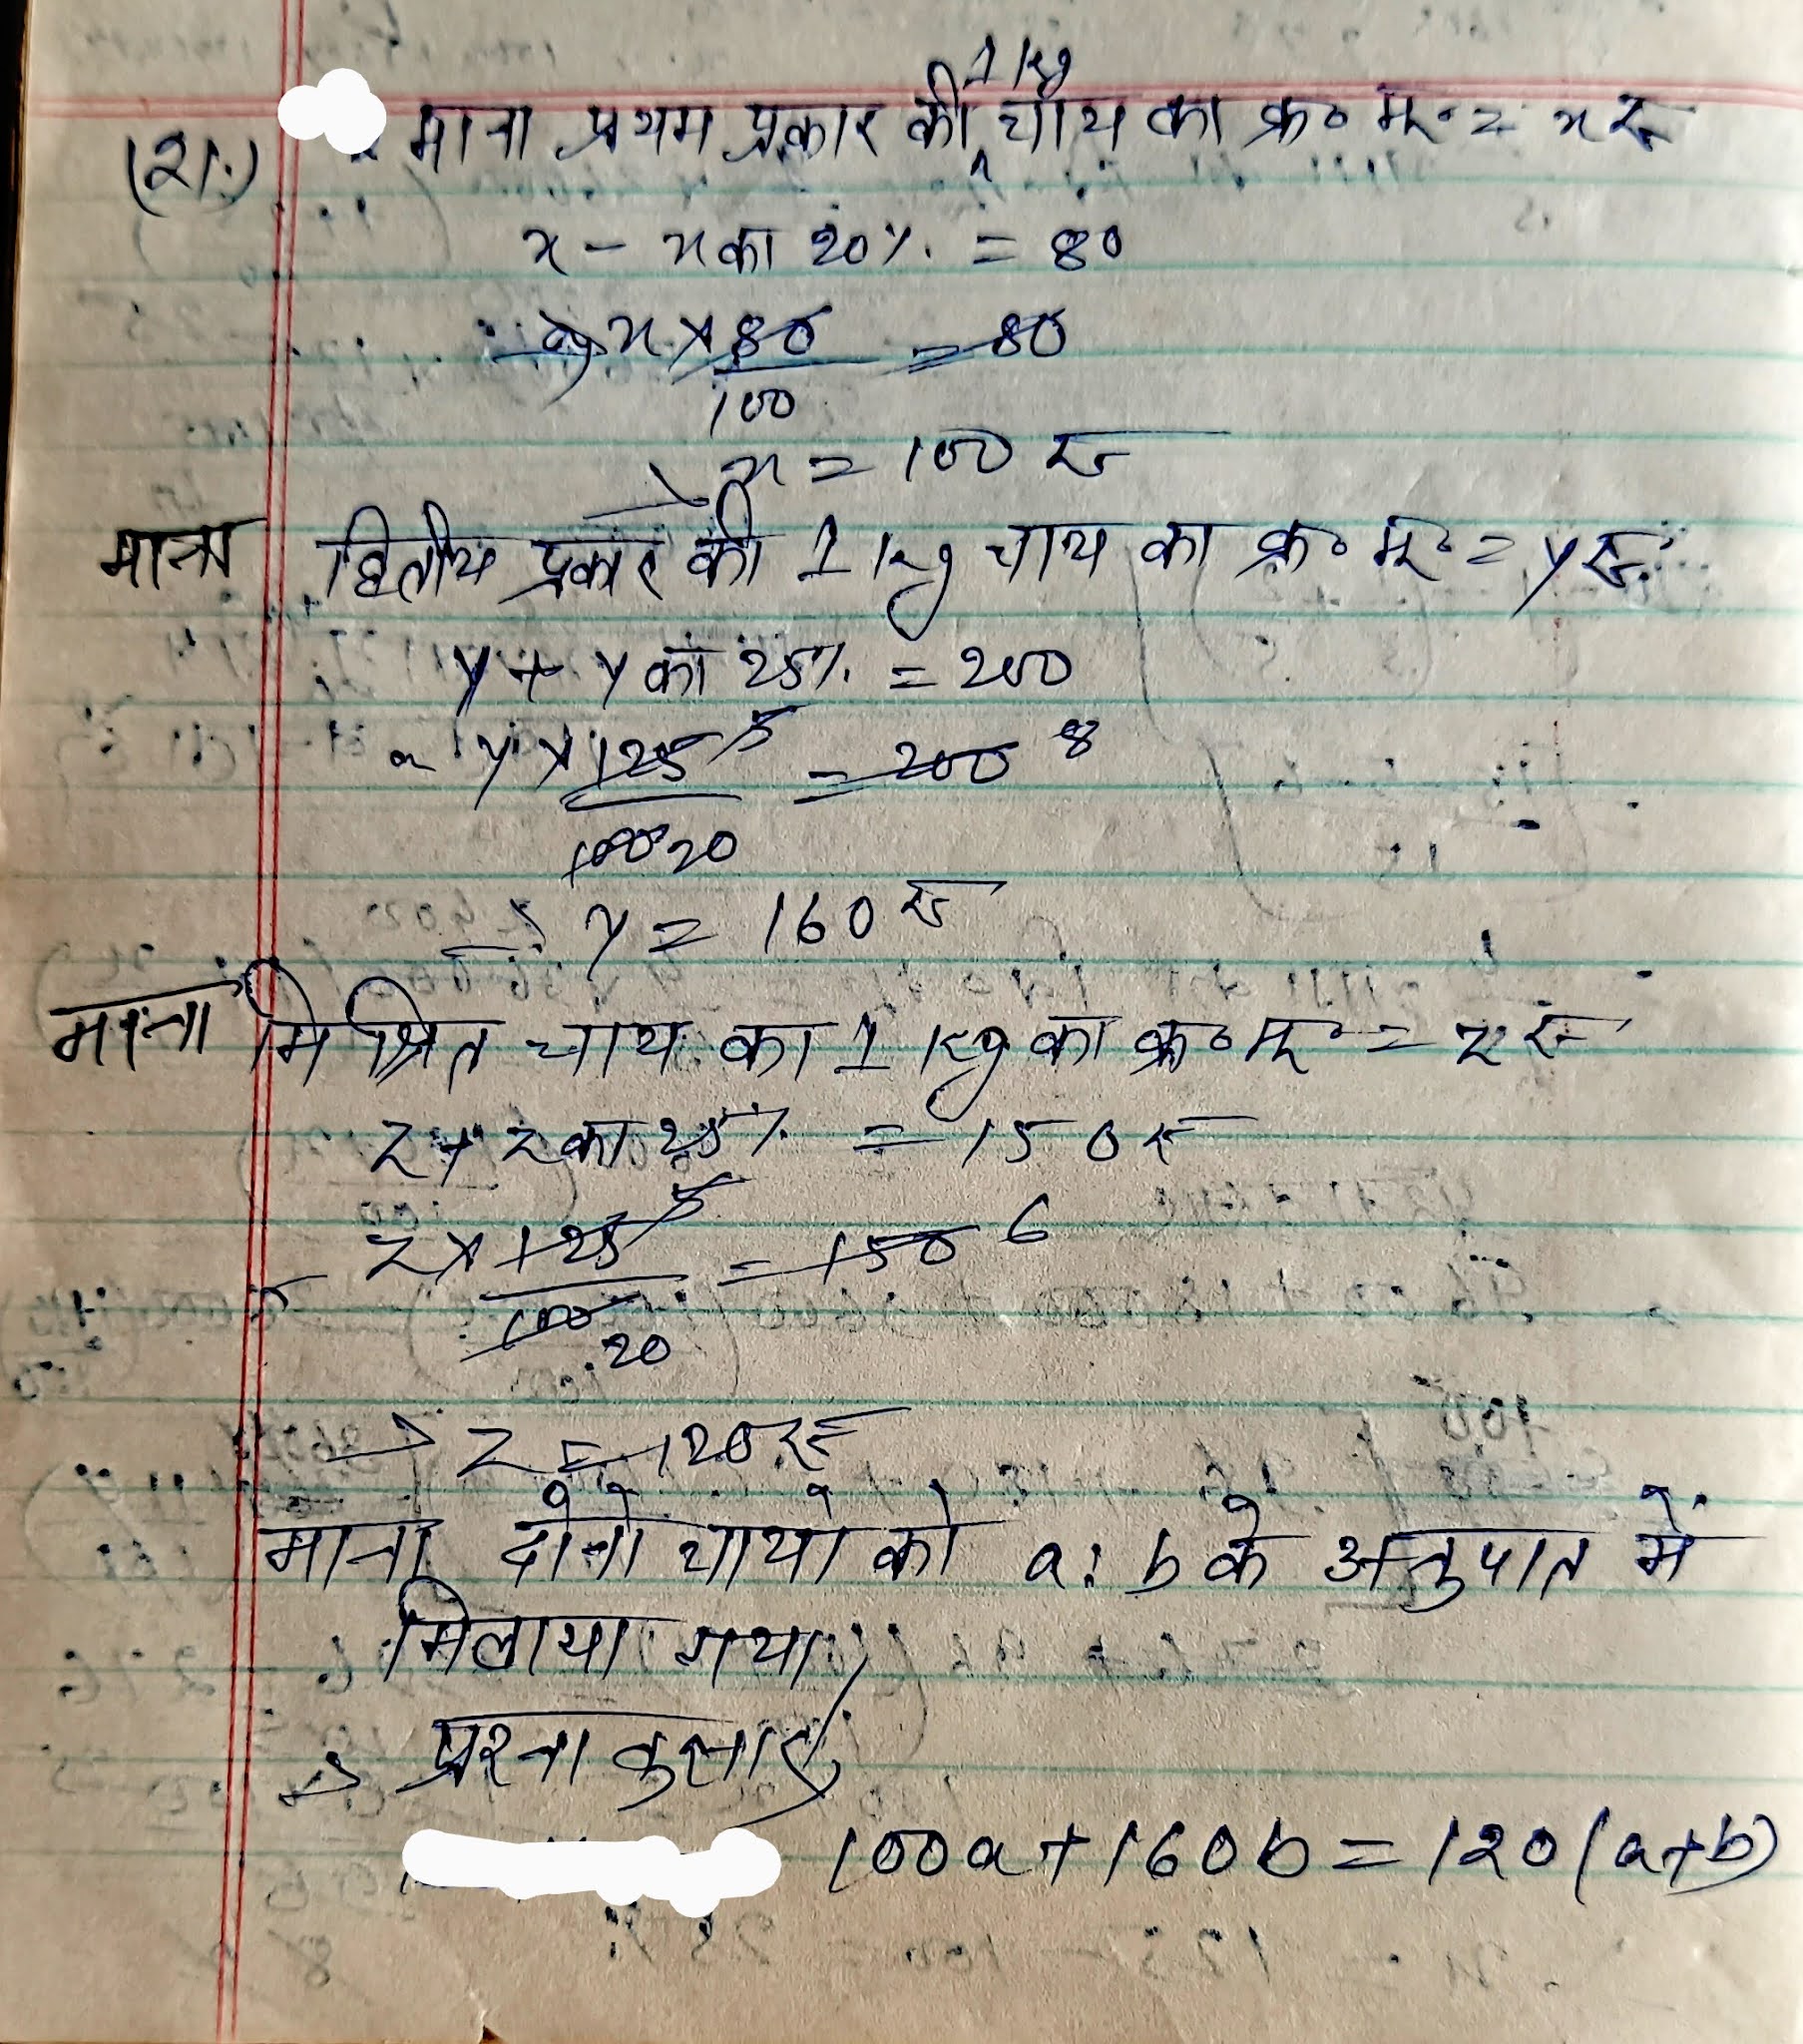 1 kg
(21.) माना प्रथम प्रकार की चाय का क्र० मू० = x रु
x - x का 20% = 80
x × 80/100 = 80
→ x = 100 रु
माना द्वितीय प्रकार की 1 kg चाय का क्र० मू० = y रु
y + y का 25% = 200
y × 125 5 / 100 20 = 200 8
→ y = 160 रु
माना मिश्रित चाय का 1 kg का क्र० मू० = z रु
z + z का 25% = 150 रु
z × 125 5 / 100 20 = 150 6
→ z = 120 रु
माना दोनो चायो को a : b के अनुपात में
मिलाया गया
→ प्रश्नानुसार,
100a + 160b = 120(a+b)